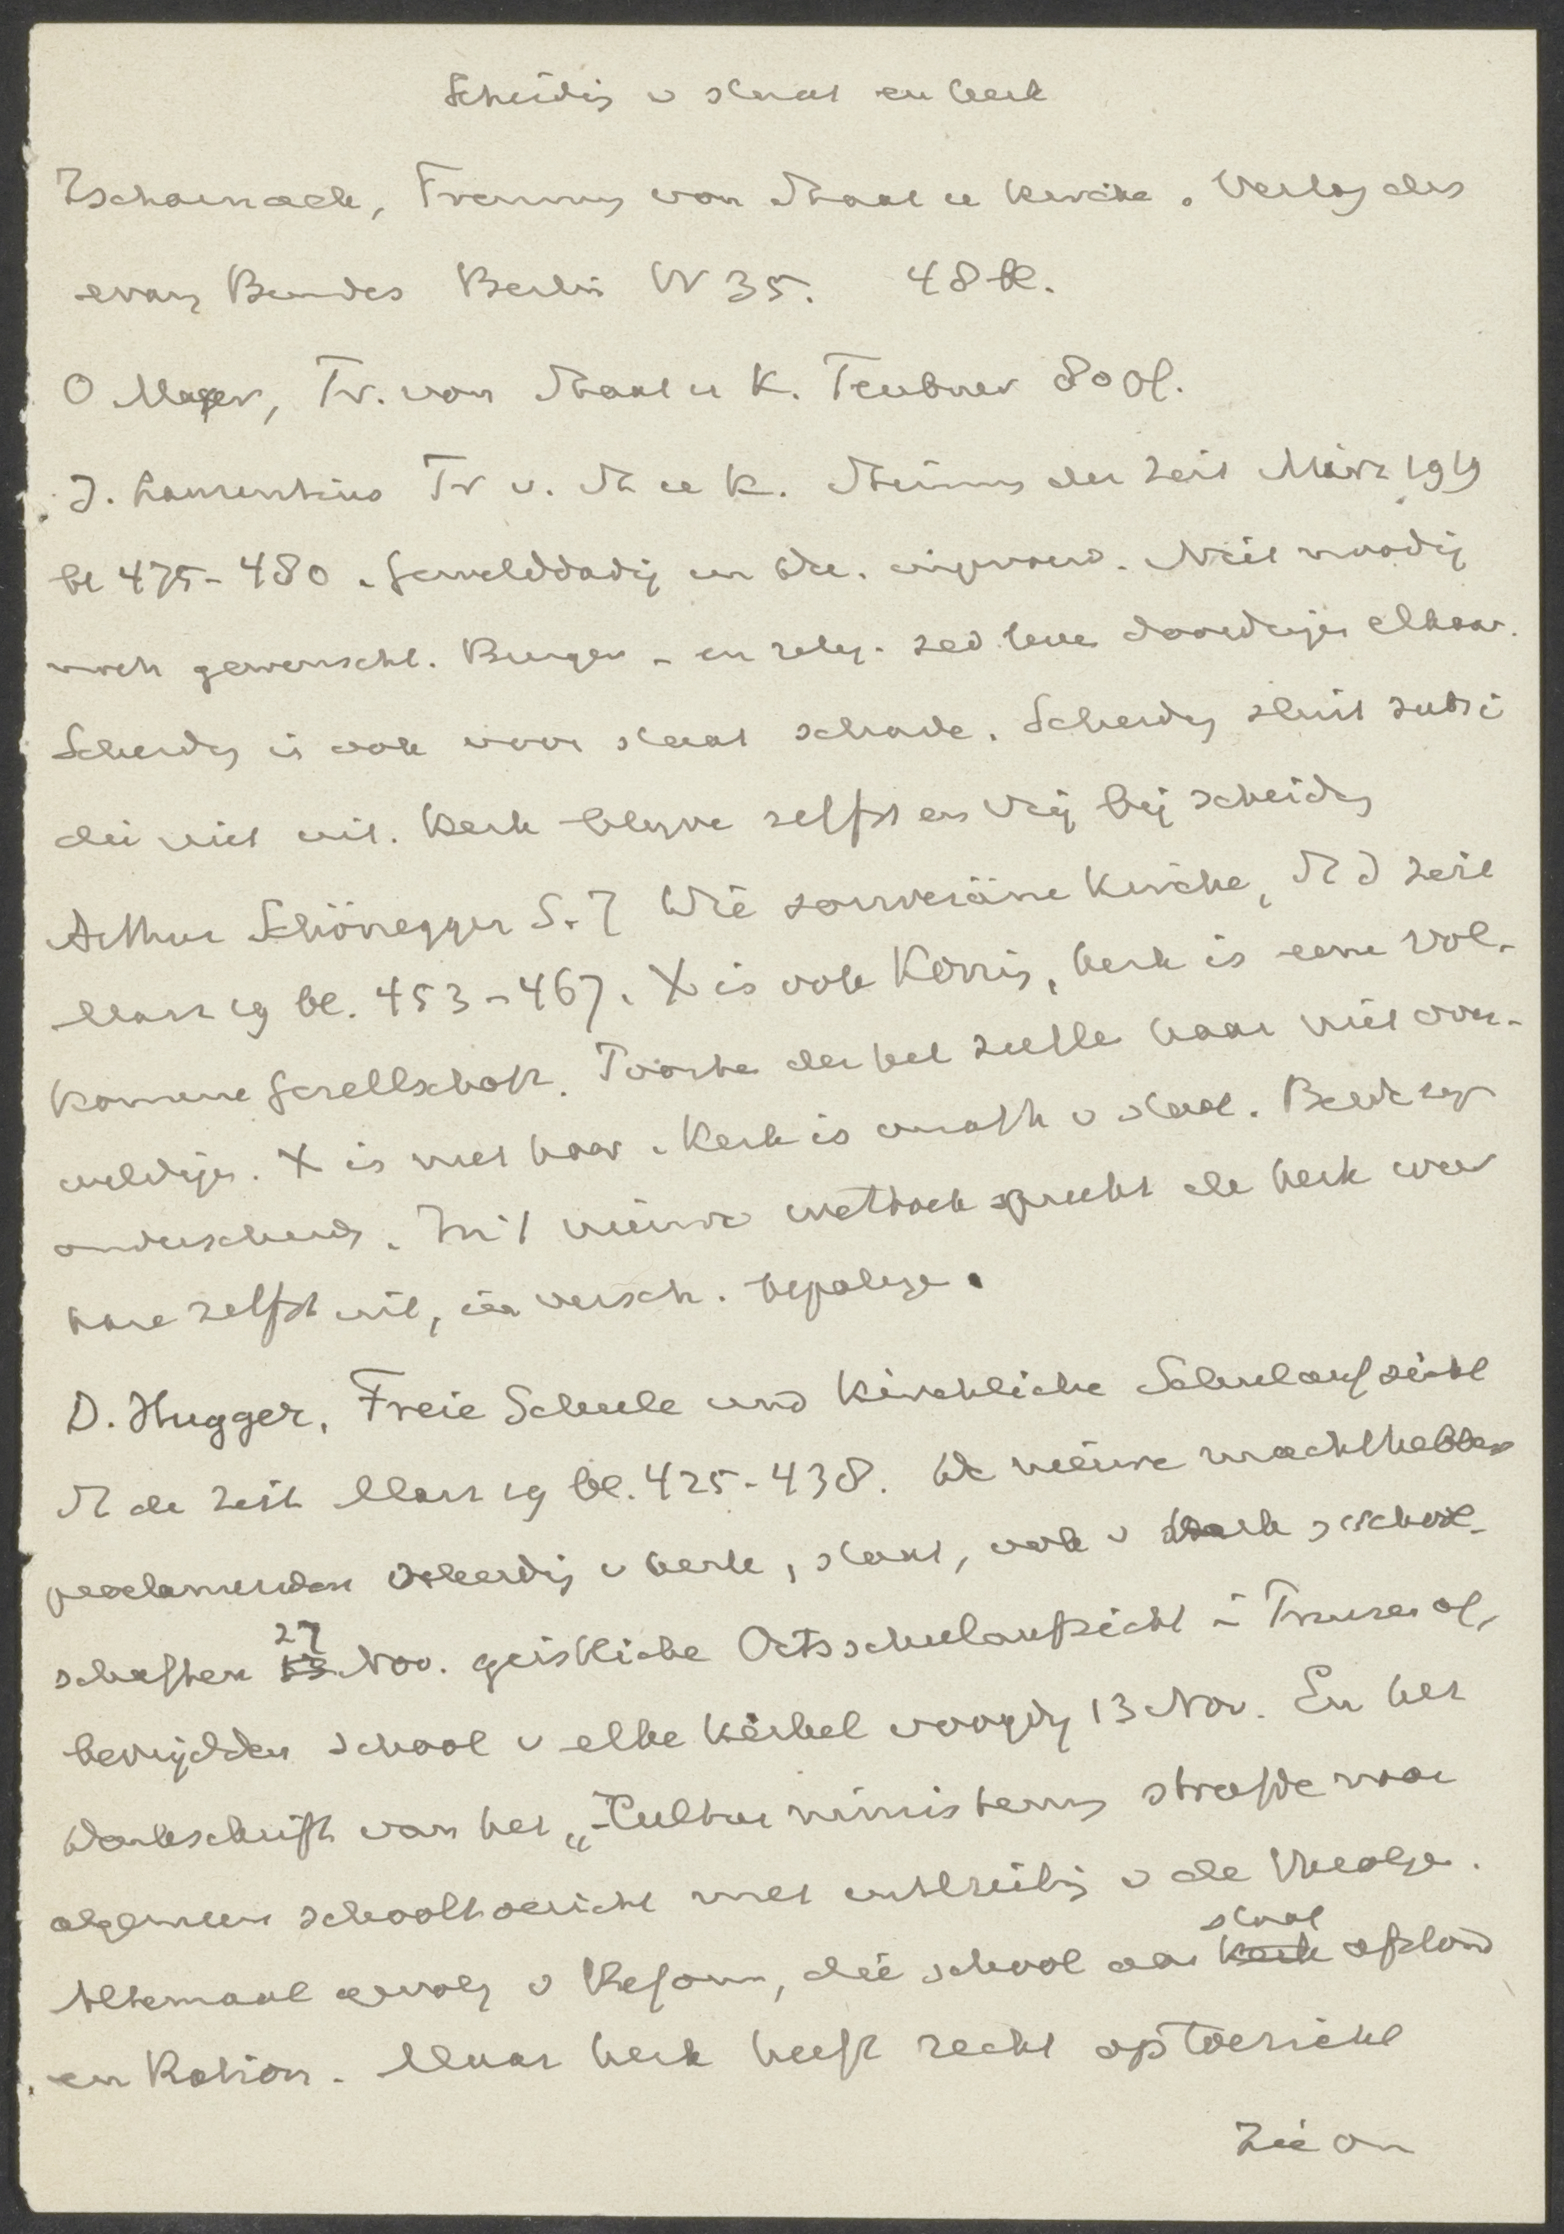 Scheidig v staat en kerk
Zscharnack, Trennung von Staat u Kirche. Verlag des
evang Bundes Berlin W 35. 48 bl.
O Mayer, Tr. von Staat u K. Teubner 80 Pf.
J. Laurentius Tr v. St u K. Stimmen der Zeit März 1919
bl 475-480. Gewelddadig en Niet noodig
noch gewenscht. Burger- en relig. zed. leven doordringen elkaar.
Scheidg is ook voor staat schade. Scheidg sluit
die niet uit. Kerk blijve zelfst en vrij bij scheidg
Arthur Schönegger S.J Die souveräne Kirche, St d Zeit
Marz 19 bl. 453-467. X is ook Koning, kerk is eene vol-
komene Gesellschaft. Poorten der hel zullen haar niet over-
weldigen. X is met haar. Kerk is onafh v staat. Beide zijn
onderscheiden. In 't nieuwe wetboek spreekt de kerk weer
hare zelfst uit, in versch. bepalgn.
D. Hugger, Freie Schule und kirchliche Schulaufsicht
St de Zeit Marz 19 bl. 425-438. De nieuwe machthebbers
proclameerden scheidig v kerk, staat, ook v kerk school-
schaften 27 Nov. geistliche Ortsschulaufsicht in Preussen af,
bevrijdden school v elke kerkel voogdij 13 Nov. En het
Denkschrift van het „Kultusministeriums strafde naar
algemeen schooltoezicht met uitsluitig v de theologn.
Altemaal gevolg v Reform, die school aan staat afstond
en Ration. Maar kerk heeft recht op toezicht
Zie om